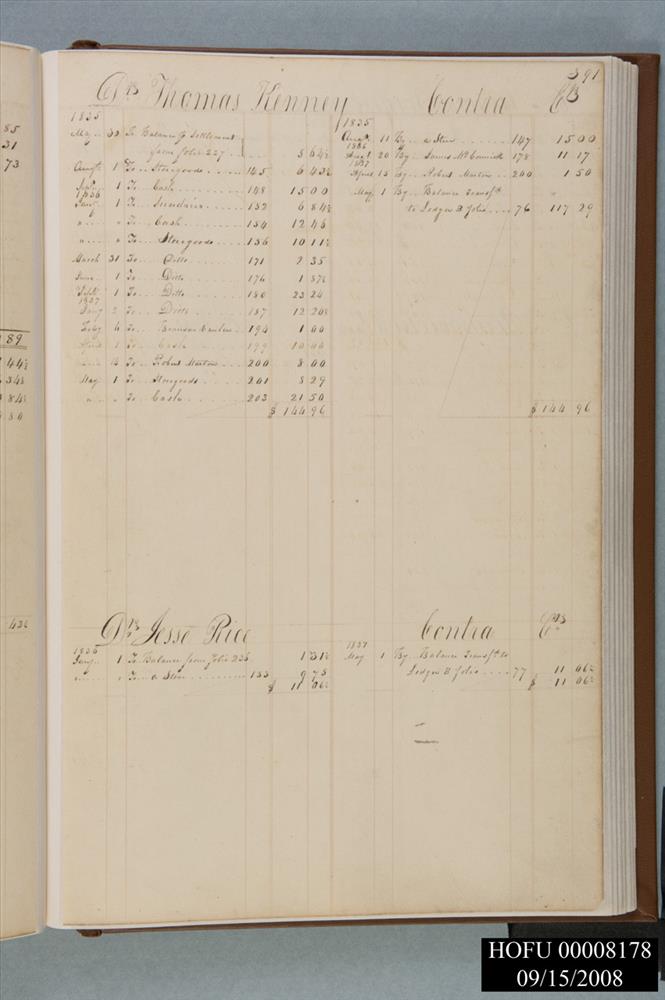 85
31
73
89
44½
34½
84½
80
43½
391
Drs Thomas Kenney Contra Crs
1835
May 30 To Balance Settlement
from folio 227 5 64½
Augt 1 To Storegoods 145 6 43½
Septr 1 To Cash 148 15 00
1836
Jany 1 To Sundries 152 6 84½
" " To Cash 154 12 46
" " To Storegoods 156 10 11½
March 31 To Ditto 171 2 35
June 1 To Ditto 176 1 87½
Septr 1 To Ditto 180 23 24
1837
Jany 2 To Ditto 187 12 20½
Feby 6 To 194 1 00
April 1 To Cash 199 10 00
" 15 To Robert Marton 200 8 00
May 1 To Storegoods 201 8 29
" " To Cash 203 21 50
$ 144 96
1835
Augt 11 By a Steer 147 15 00
1836
Augt 20 By James McCormick 178 11 17
1837
April 15 By Robert Marton 200 1 50
May 1 By Balance Transft
to Ledger B folio 76 117 29
$ 144 96
Drs Jesse Rice Contra Crs
1836
Jany 1 To Balance from folio 236 1 31½
" " To a Steer 153 9 75
$ 11 06½
1837
May 1 By Balance Transft to
Ledger B folio 77 11 06½
$ 11 06½
HOFU 00008178
09/15/2008